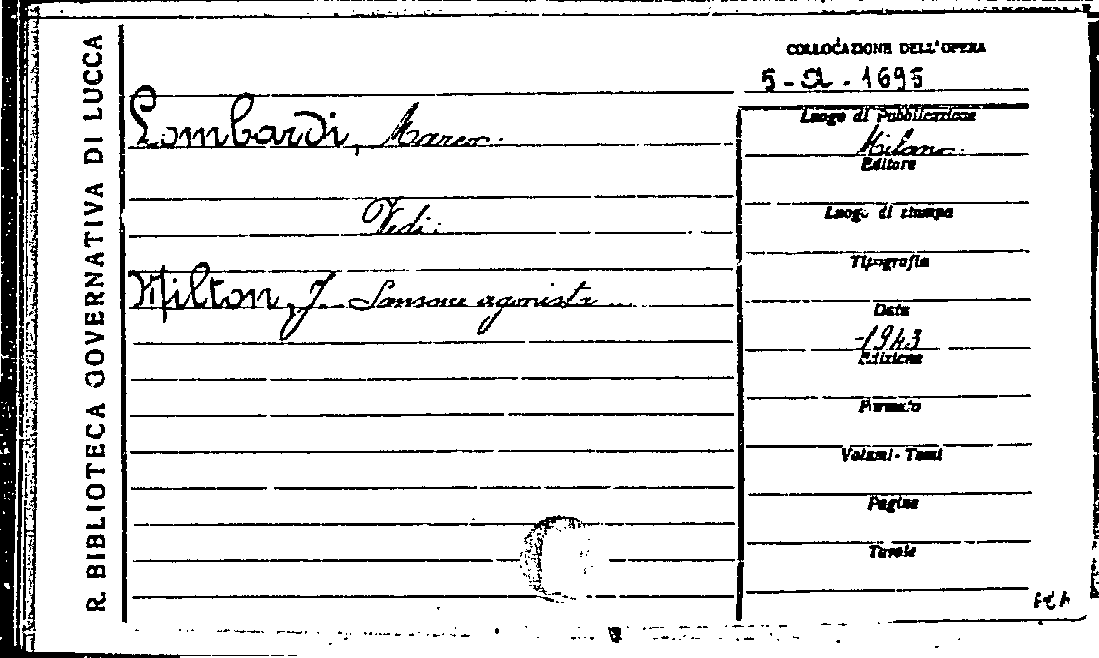 R. BIBLIOTECA GOVERNATIVA DI LUCCA
COLLOCAZIONE DELL'OPERA
5-A-1695
Lombardi, Marco.
Vedi:
Milton, J. Sansone agonista
Luogo di Pubblicazione
Milano.
Editore
Luogo di stampa
Tipografia
Data
-1943
Edizione
Formato
Volumi-Tomi
Pagine
Tavole